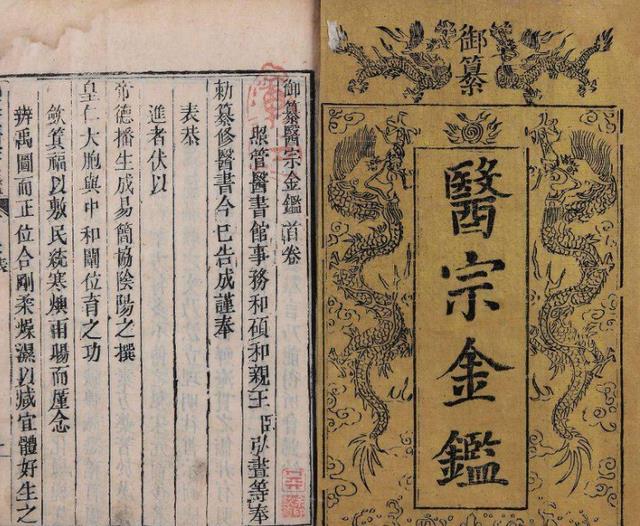 御纂
醫宗金鑑
御纂醫宗金鑑首卷
照管醫書館事務和碩和親王臣弘晝等奉
勅纂修醫書今已告成謹奉
表恭
進者伏以
帝德播生成易簡協陰陽之撰
皇仁大胞與中和闡位育之功
斂箕福以敷民疵寒燠雨暘而厪念
辨禹圖而正位合剛柔燥濕以咸宜體好生之